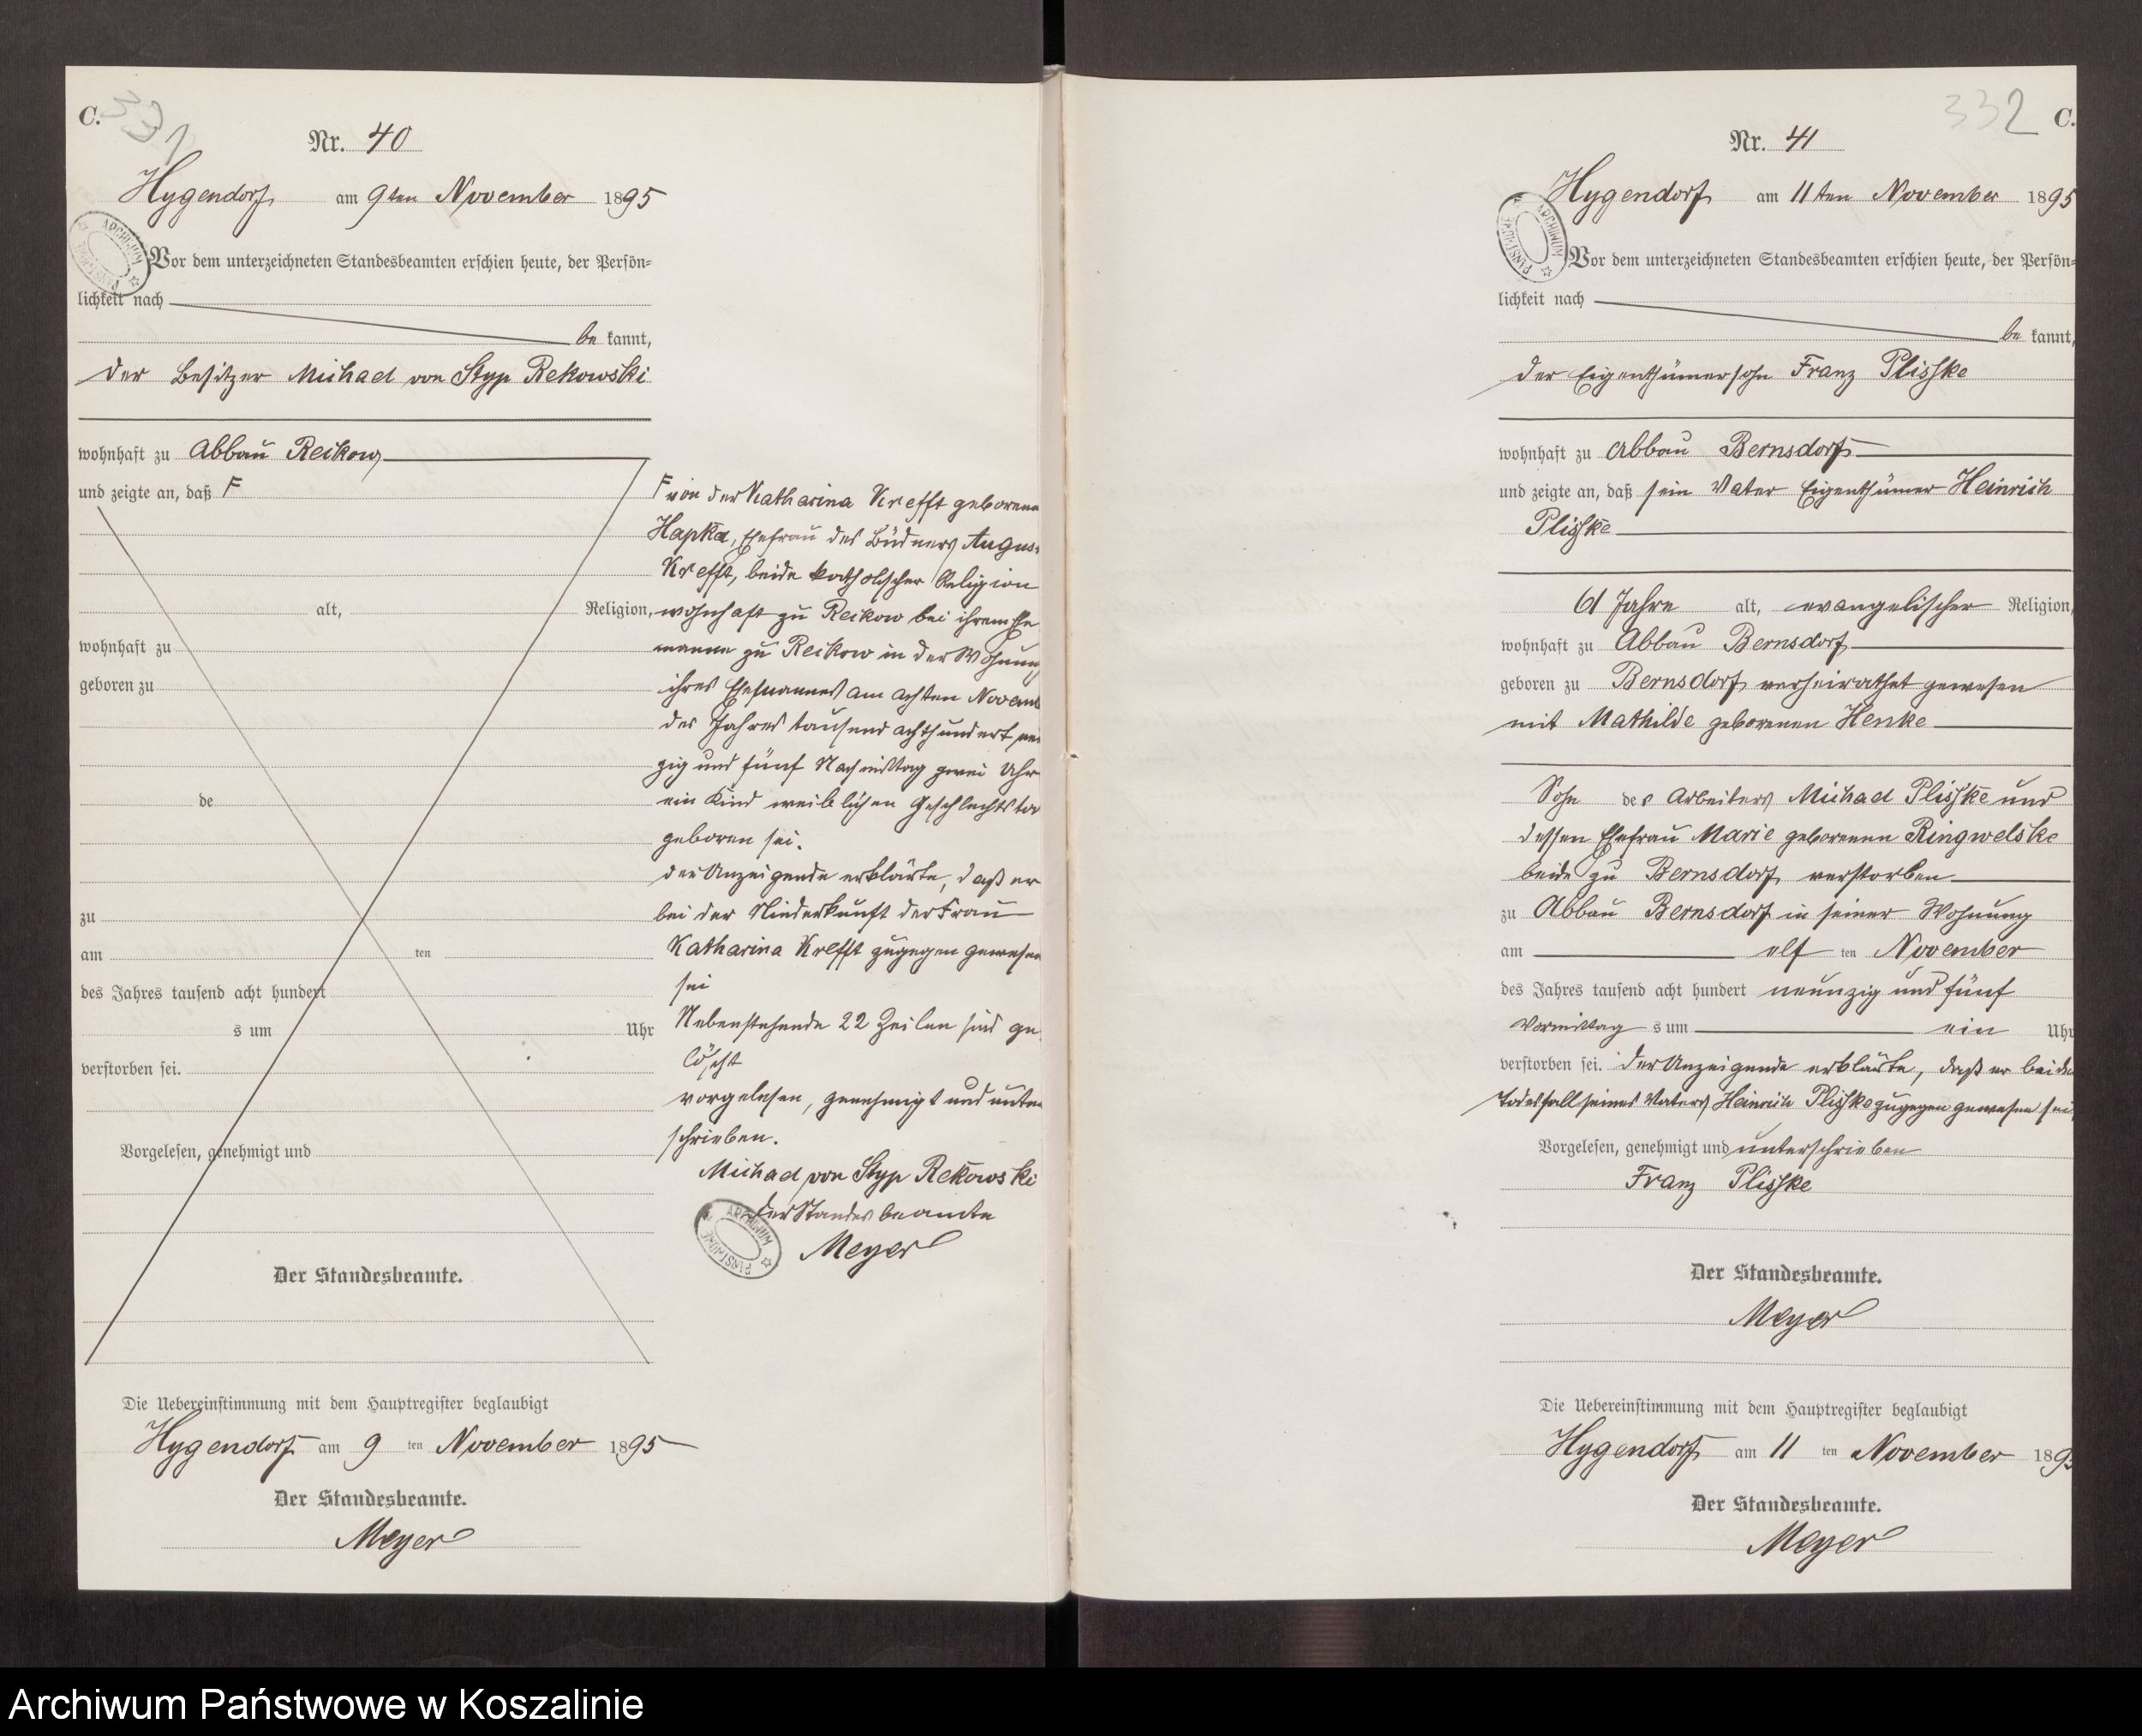 C.
331
Nr. 40
Hygendorf am 9ten November 1895
Vor dem unterzeichneten Standesbeamten erschien heute, der Persön-
lichkeit nach
be kannt,
der Besitzer Michael von Styp Rekowski
wohnhaft zu Abbau Reikow
und zeigte an, daß F
alt, Religion,
wohnhaft zu
geboren zu
de
zu
am ten
des Jahres tausend acht hundert
s um Uhr
verstorben sei.
Vorgelesen, genehmigt und
Der Standesbeamte.
Die Uebereinstimmung mit dem Hauptregister beglaubigt
Hygendorf am 9 ten November 1895
Der Standesbeamte.
Meyer
F von der Katharina Krefft geborene
Hapka, Ehefrau des Büdners August
Krefft, beide katholischer Religion
wohnhaft zu Reikow bei ihrem Ehe
manne zu Reikow in der Wohnung
ihres Ehemannes am achten Novemb
des Jahres tausend achthundert neu
zig und fünf Nachmittag zwei Uhr
ein Kind weiblichen Geschlechts tod
geboren sei.
der Anzeigende erklärte, daß er
bei der Niederkunft der Frau
Katharina Krefft zugegen gewesen
sei
Nebenstehende 22 Zeilen sind ge
löscht
vorgelesen, genehmigt und unter
schrieben.
Michael von Styp Rekowski
der Standesbeamte
Meyer
332
C.
Nr. 41
Hygendorf am 11ten November 1895
Vor dem unterzeichneten Standesbeamten erschien heute, der Persön-
lichkeit nach
be kannt,
der Eigenthümersohn Franz Plischke
wohnhaft zu Abbau Bernsdorf
und zeigte an, daß sein Vater Eigenthümer Heinrich
Plischke
61 Jahre alt, evangelischer Religion,
wohnhaft zu Abbau Bernsdorf
geboren zu Bernsdorf verheirathet gewesen
mit Mathilde geborenen Henke
Sohn des Arbeiters Michael Plischke und
dessen Ehefrau Marie geborenen Ringwelske
beide zu Bernsdorf verstorben
zu Abbau Bernsdorf in seiner Wohnung
am elf ten November
des Jahres tausend acht hundert neunzig und fünf
Vormittag s um ein Uhr
verstorben sei. der Anzeigende erklärte, daß er bei dem
Todesfall seines Vaters Heinrich Plischke zugegen gewesen sei
Vorgelesen, genehmigt und unterschrieben
Franz Plischke
Der Standesbeamte.
Meyer
Die Uebereinstimmung mit dem Hauptregister beglaubigt
Hygendorf am 11 ten November 189
Der Standesbeamte.
Meyer
Archiwum Państwowe w Koszalinie